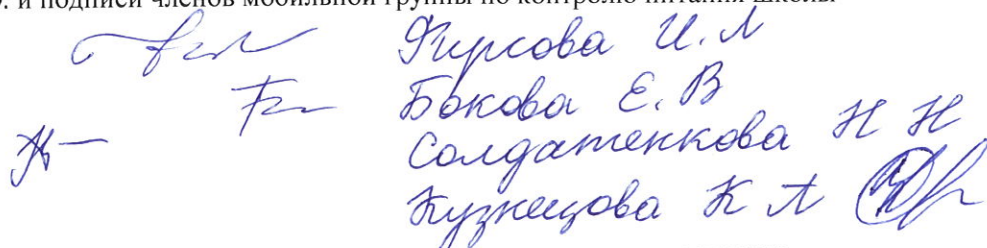 . и подписи членов мобильной группы по контролю питания школы
Фирсова И. Л
Бокова Е. В
Солдатенкова Н Н
Кузнецова К А